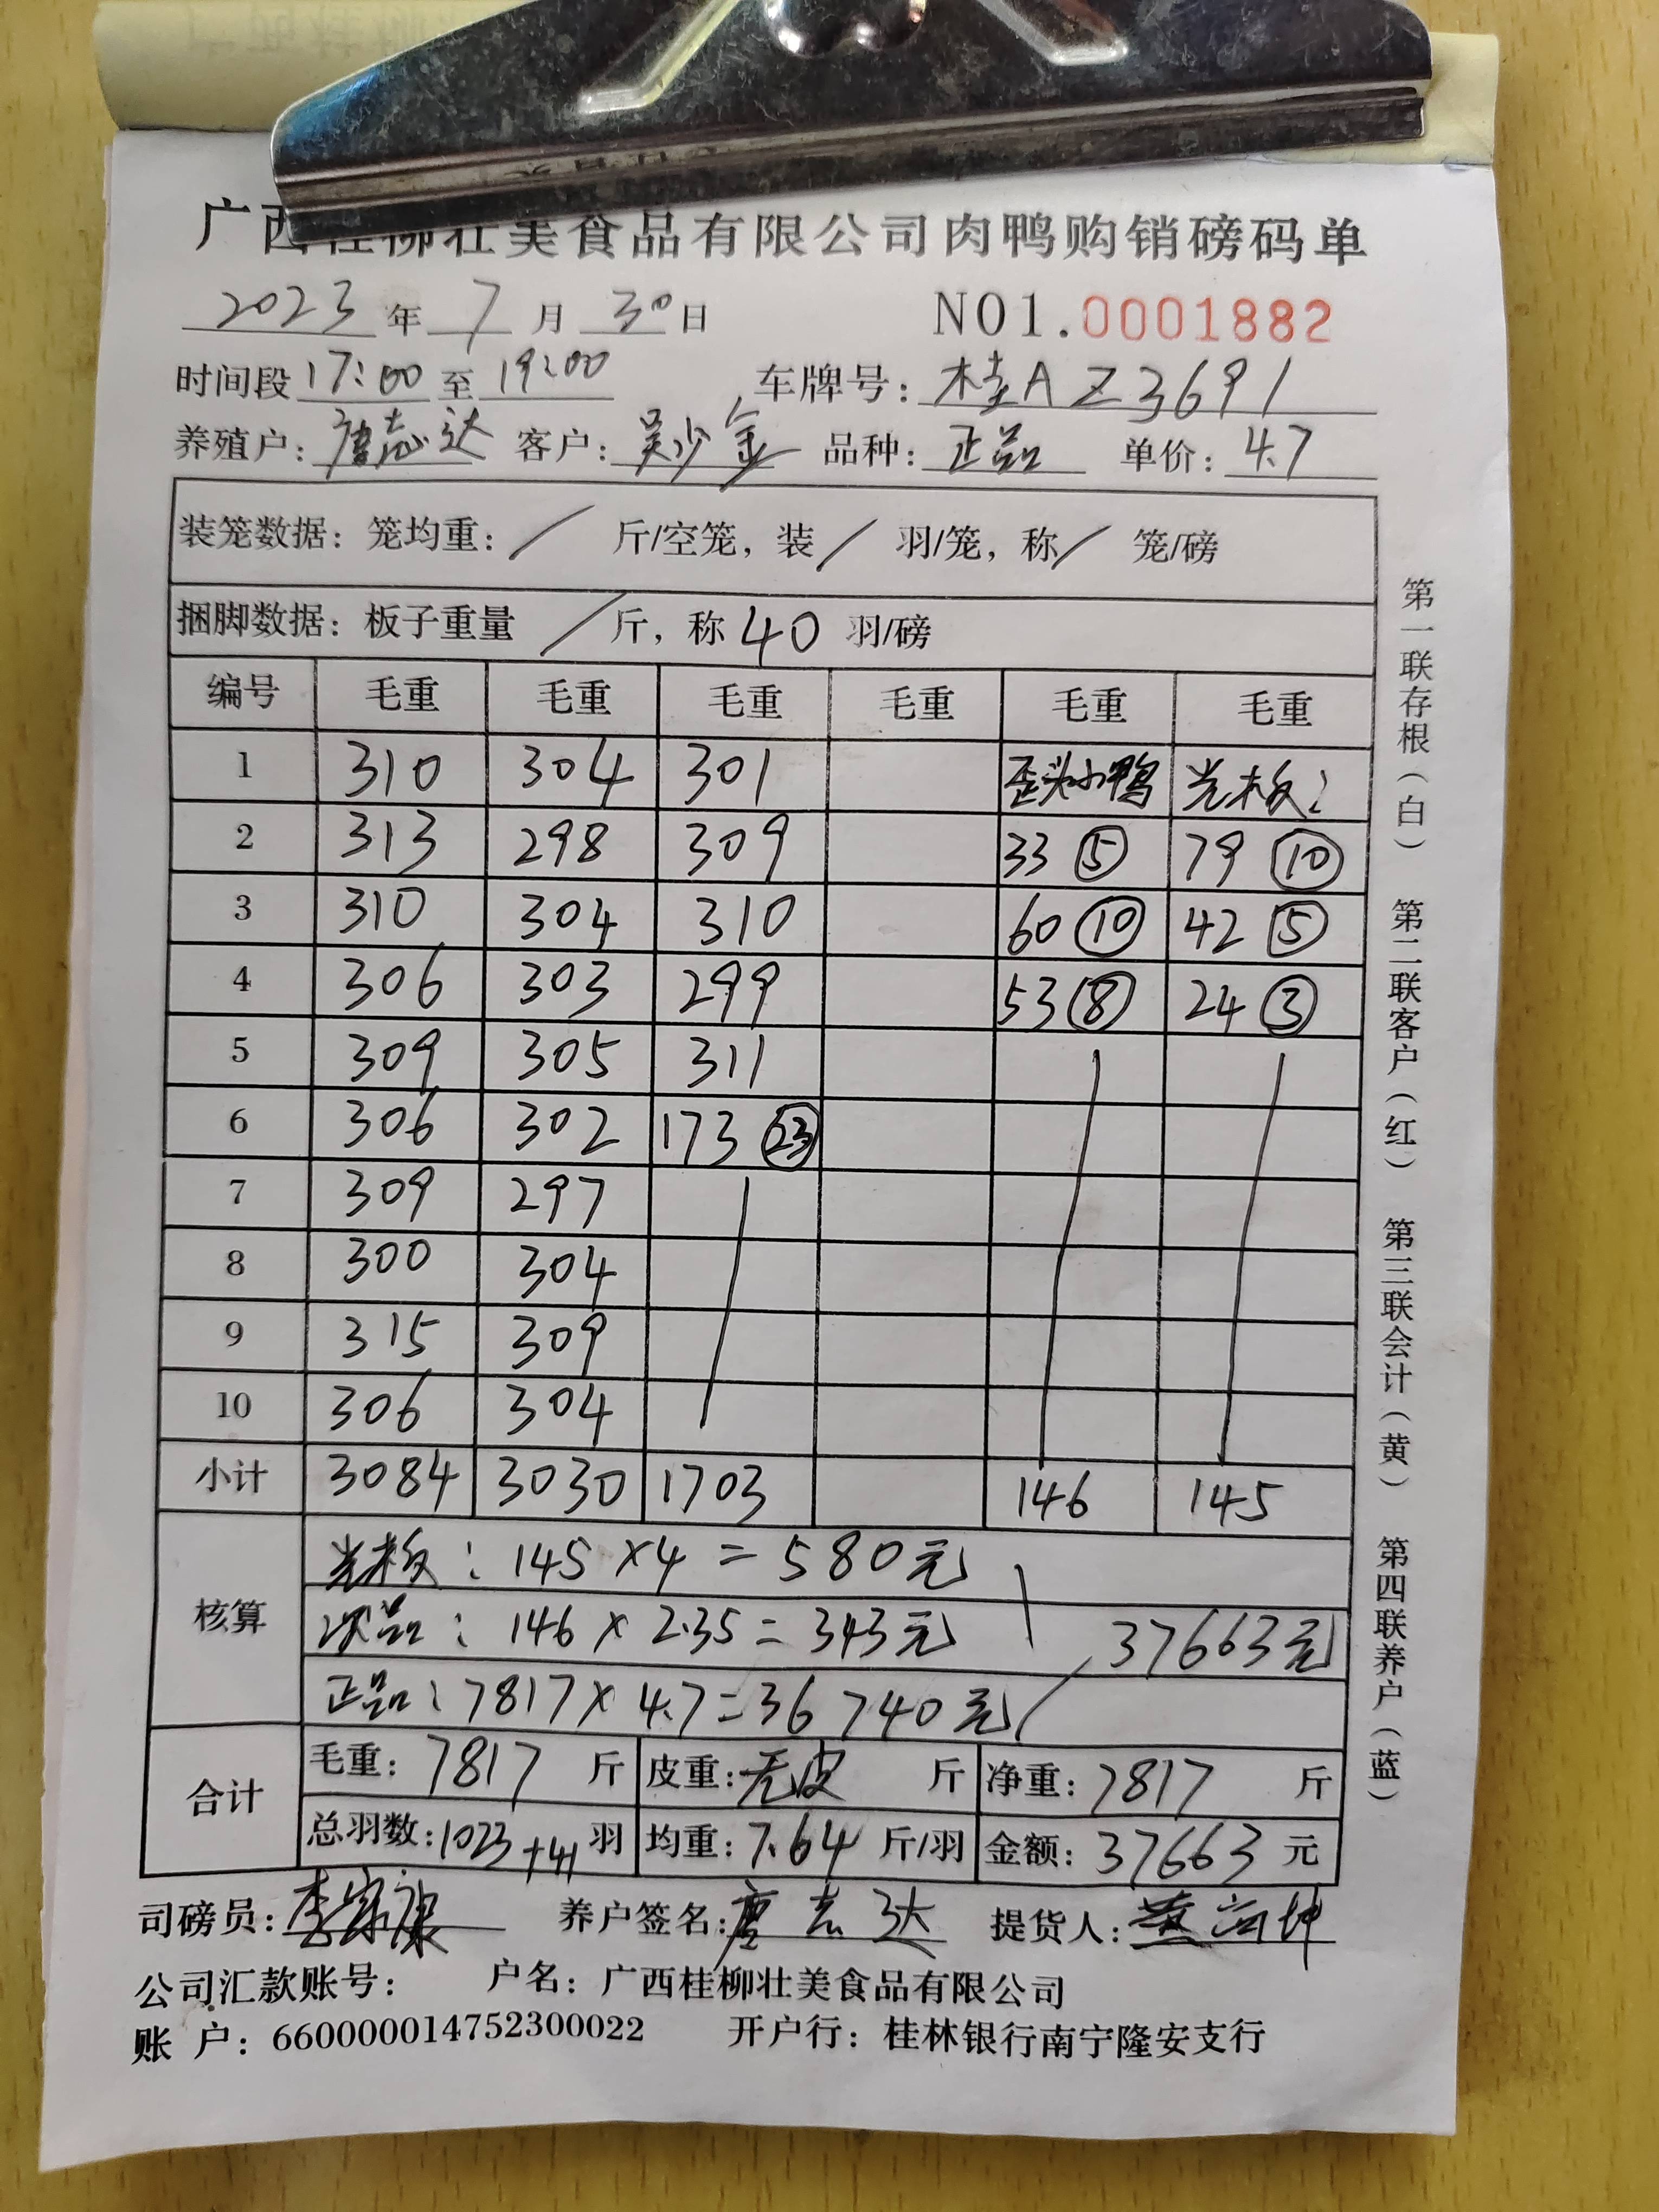 广西桂柳壮美食品有限公司肉鸭购销磅码单
2023年7月30日 NO1.0001882
时间段17:00至19:00 车牌号:桂AZ3691
养殖户:唐志达 客户:吴少金 品种:正品 单价:4.7
装笼数据:笼均重:/ 斤/空笼,装/ 羽/笼,称/ 笼/磅
捆脚数据:板子重量 /斤,称40羽/磅
编号 毛重 毛重 毛重 毛重 毛重 毛重
1 310 304 301 歪头小鸭 光板:
2 313 298 309 33⑤ 79⑩
3 310 304 310 60⑩ 42⑤
4 306 303 299 53⑧ 24③
5 309 305 311
6 306 302 173㉓
7 309 297
8 300 304
9 315 309
10 306 304
小计 3084 3030 1703 146 145
核算
光板:145×4=580元
次品:146×2.35=343元
正品:7817×4.7=36740元
37663元
合计
毛重:7817斤 皮重:无皮 斤 净重:7817 斤
总羽数:1023+41羽 均重:7.64斤/羽 金额:37663元
司磅员: 养户签名:唐志达 提货人:
公司汇款账号: 户名:广西桂柳壮美食品有限公司
账 户:660000014752300022 开户行:桂林银行南宁隆安支行
第一联存根(白) 第二联客户(红) 第三联会计(黄) 第四联养户(蓝)